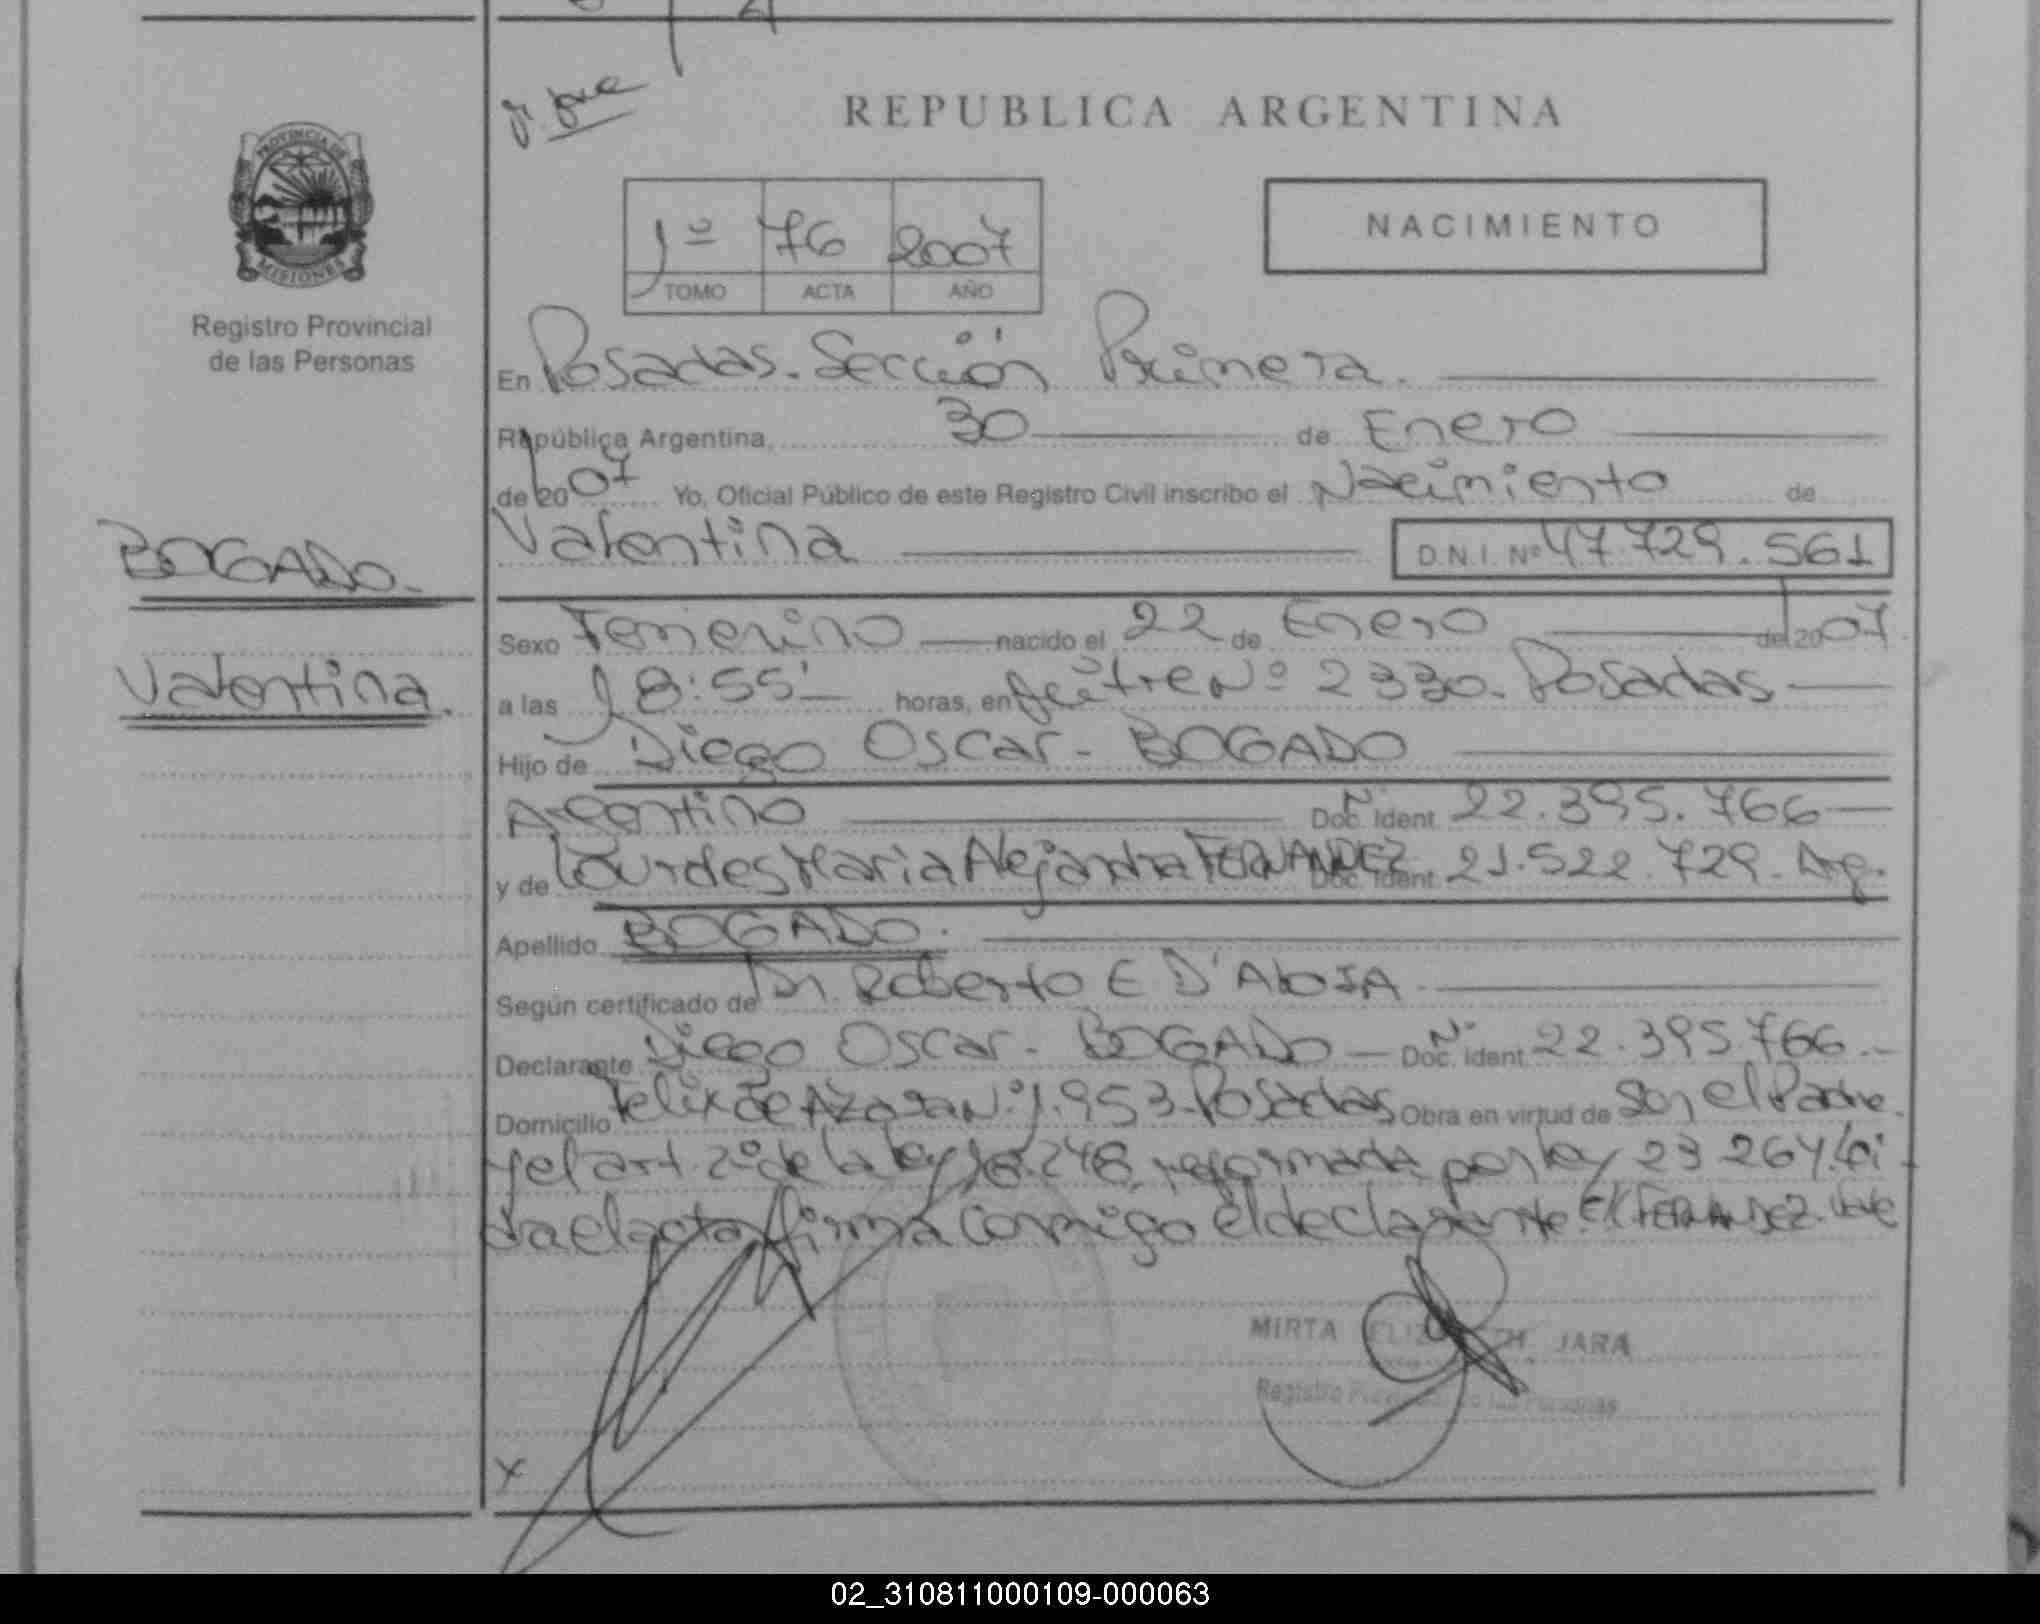 PROVINCIA DE
MISIONES
Registro Provincial
de las Personas
BOGADO.
Valentina.
REPUBLICA ARGENTINA
1º 76 2007
TOMO ACTA AÑO
NACIMIENTO
En Posadas. Sección Primera.
República Argentina, 30 de Enero
de 2007 Yo, Oficial Público de este Registro Civil inscribo el Nacimiento de
Valentina D.N.I. Nº 47.729.561
Sexo Femenino nacido el 22 de Enero de 2007.
a las 18:55' horas, en Mitre Nº 2330. Posadas
Hijo de Diego Oscar - BOGADO
Argentino Doc. Ident. Nº 22.395.766
y de Lourdes Maria Alejandra FERNANDEZ Doc. Ident. 21.522.729. Arg.
Apellido BOGADO.
Según certificado de Dr. Roberto E D'AloIA
Declarante Diego Oscar - BOGADO Doc. Ident. Nº 22.395.766.
Domicilio Felix de Azara Nº 1.953. Posadas Obra en virtud de Ser el Padre.
y el art. 2º de la ley 18.248, reformada por ley 23264. Lei
da el acta, firma conmigo el declarante. E/ FERNANDEZ. Vale
MIRTA ELIZABETH JARA
Registro Provincial de las Personas
X
02_310811000109-000063